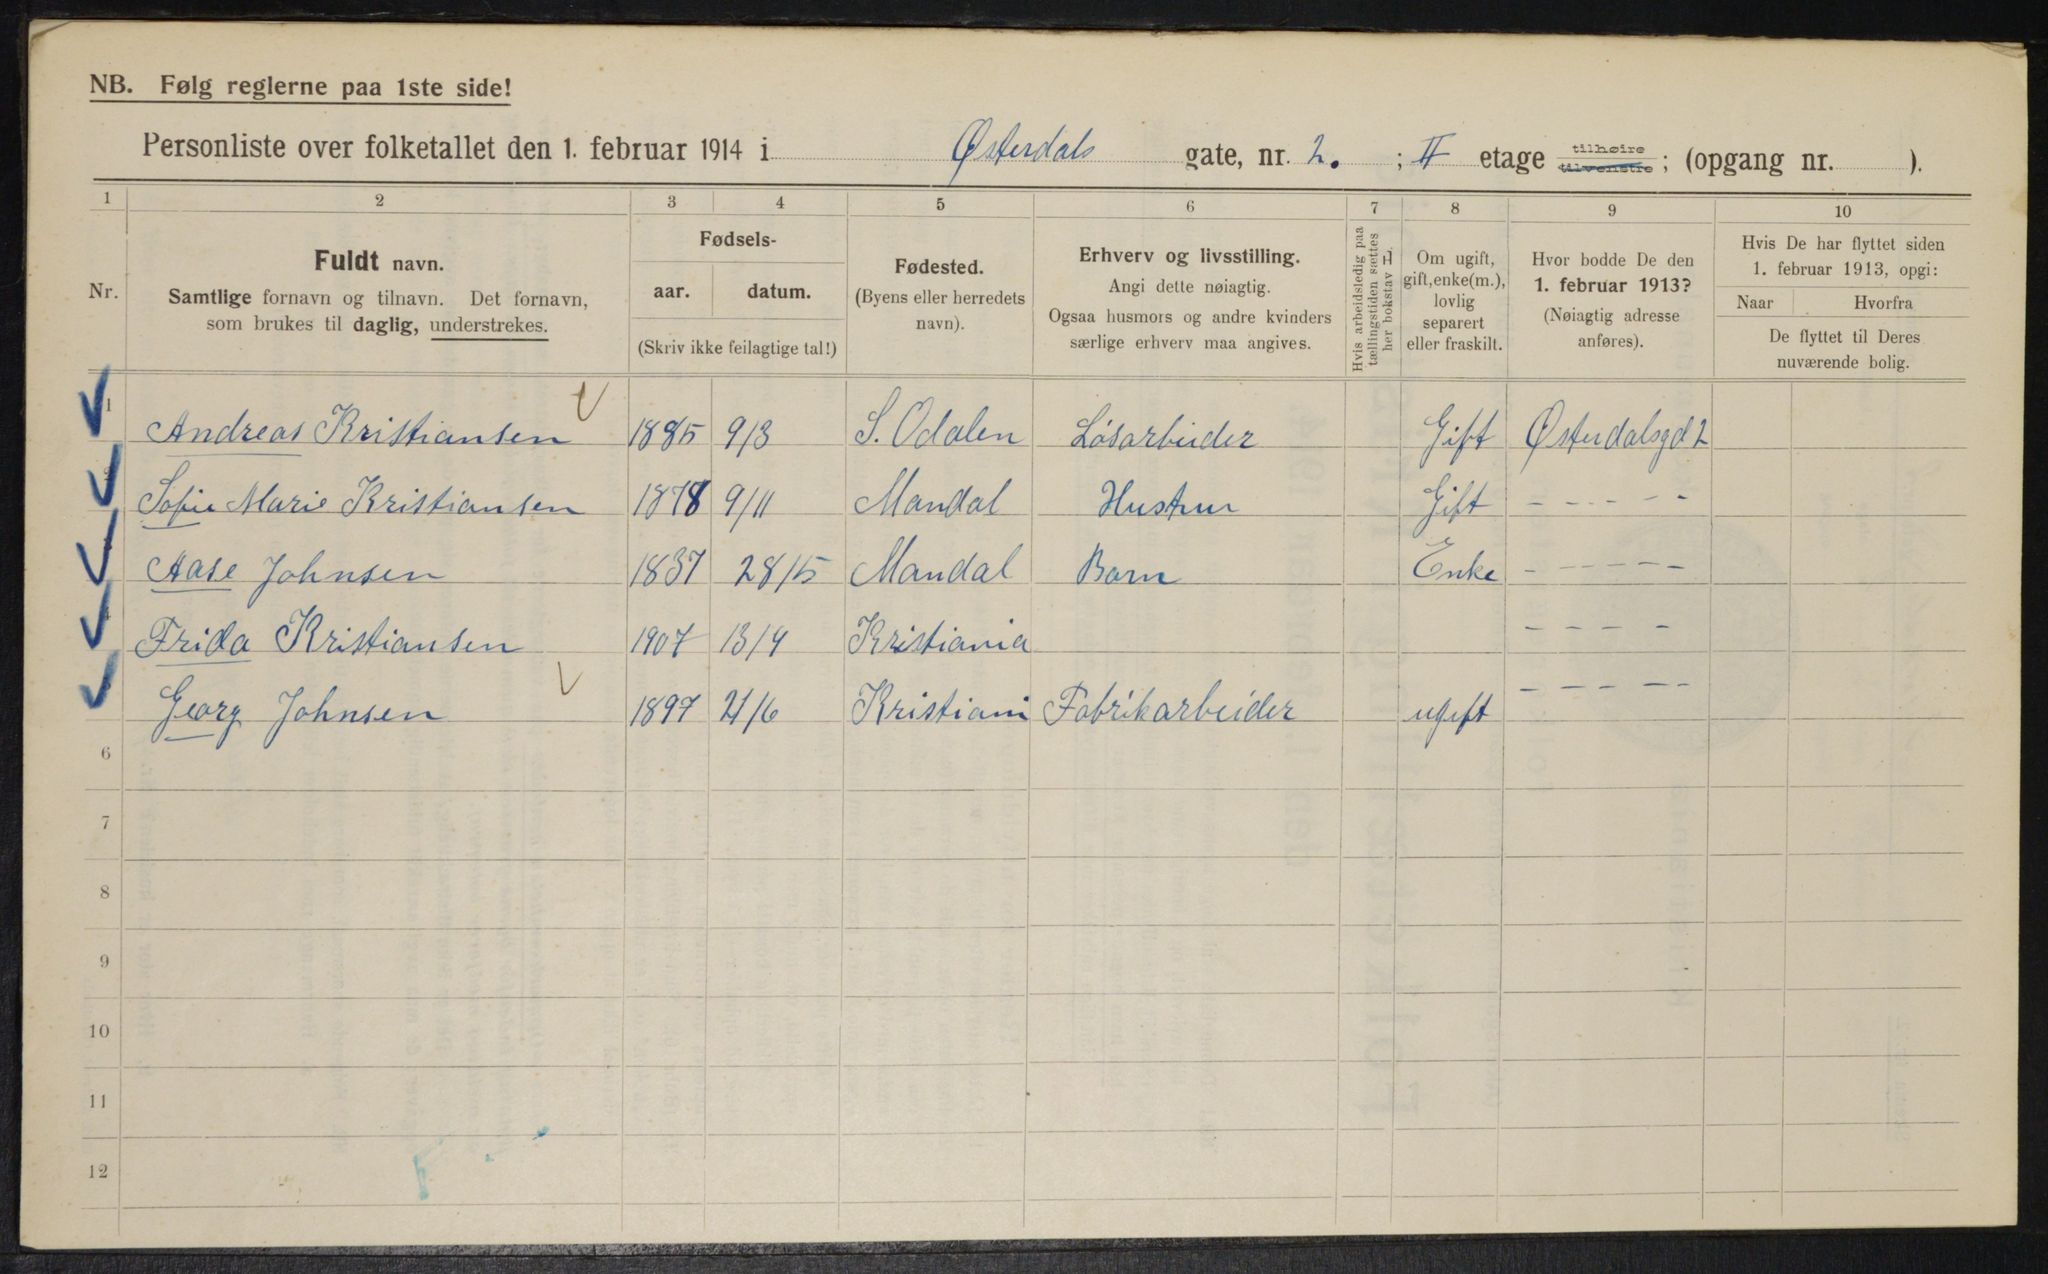 NB. Følg reglerne paa 1ste side!
Personliste over folketallet den 1. februar 1914 i Østerdals gate, nr. 2. ; II etage tilhøire tilvenstre ; (opgang nr. ).
1 2 3 4 5 6 7 8 9 10
Nr.
Fuldt navn.
Samtlige fornavn og tilnavn. Det fornavn,
som brukes til daglig, understrekes.
Fødsels-
aar. datum.
(Skriv ikke feilagtige tal!)
Fødested.
(Byens eller herredets
navn).
Erhverv og livsstilling.
Angi dette nøiagtig.
Ogsaa husmors og andre kvinders
særlige erhverv maa angives.
Hvis arbeidsledig paa
tællingstiden sættes
her bokstav L.
Om ugift,
gift, enke(m.),
lovlig
separert
eller fraskilt.
Hvor bodde De den
1. februar 1913?
(Nøiagtig adresse
anføres).
Hvis De har flyttet siden
1. februar 1913, opgi:
Naar Hvorfra
De flyttet til Deres
nuværende bolig.
1 Andreas Kristiansen 1885 9/3 S. Odalen Løsarbeider Gift Østerdalsgd 2
Sofie Marie Kristiansen 1878 9/11 Mandal Hustru Gift - - - - - -
Aase Johnsen 1837 28/5 Mandal Barn Enke - - - - - -
Frida Kristiansen 1907 13/4 Kristiania - - - -
Georg Johnsen 1897 21/6 Kristiani Fabrikarbeider ugift - - - - -
6
7
8
9
10
11
12